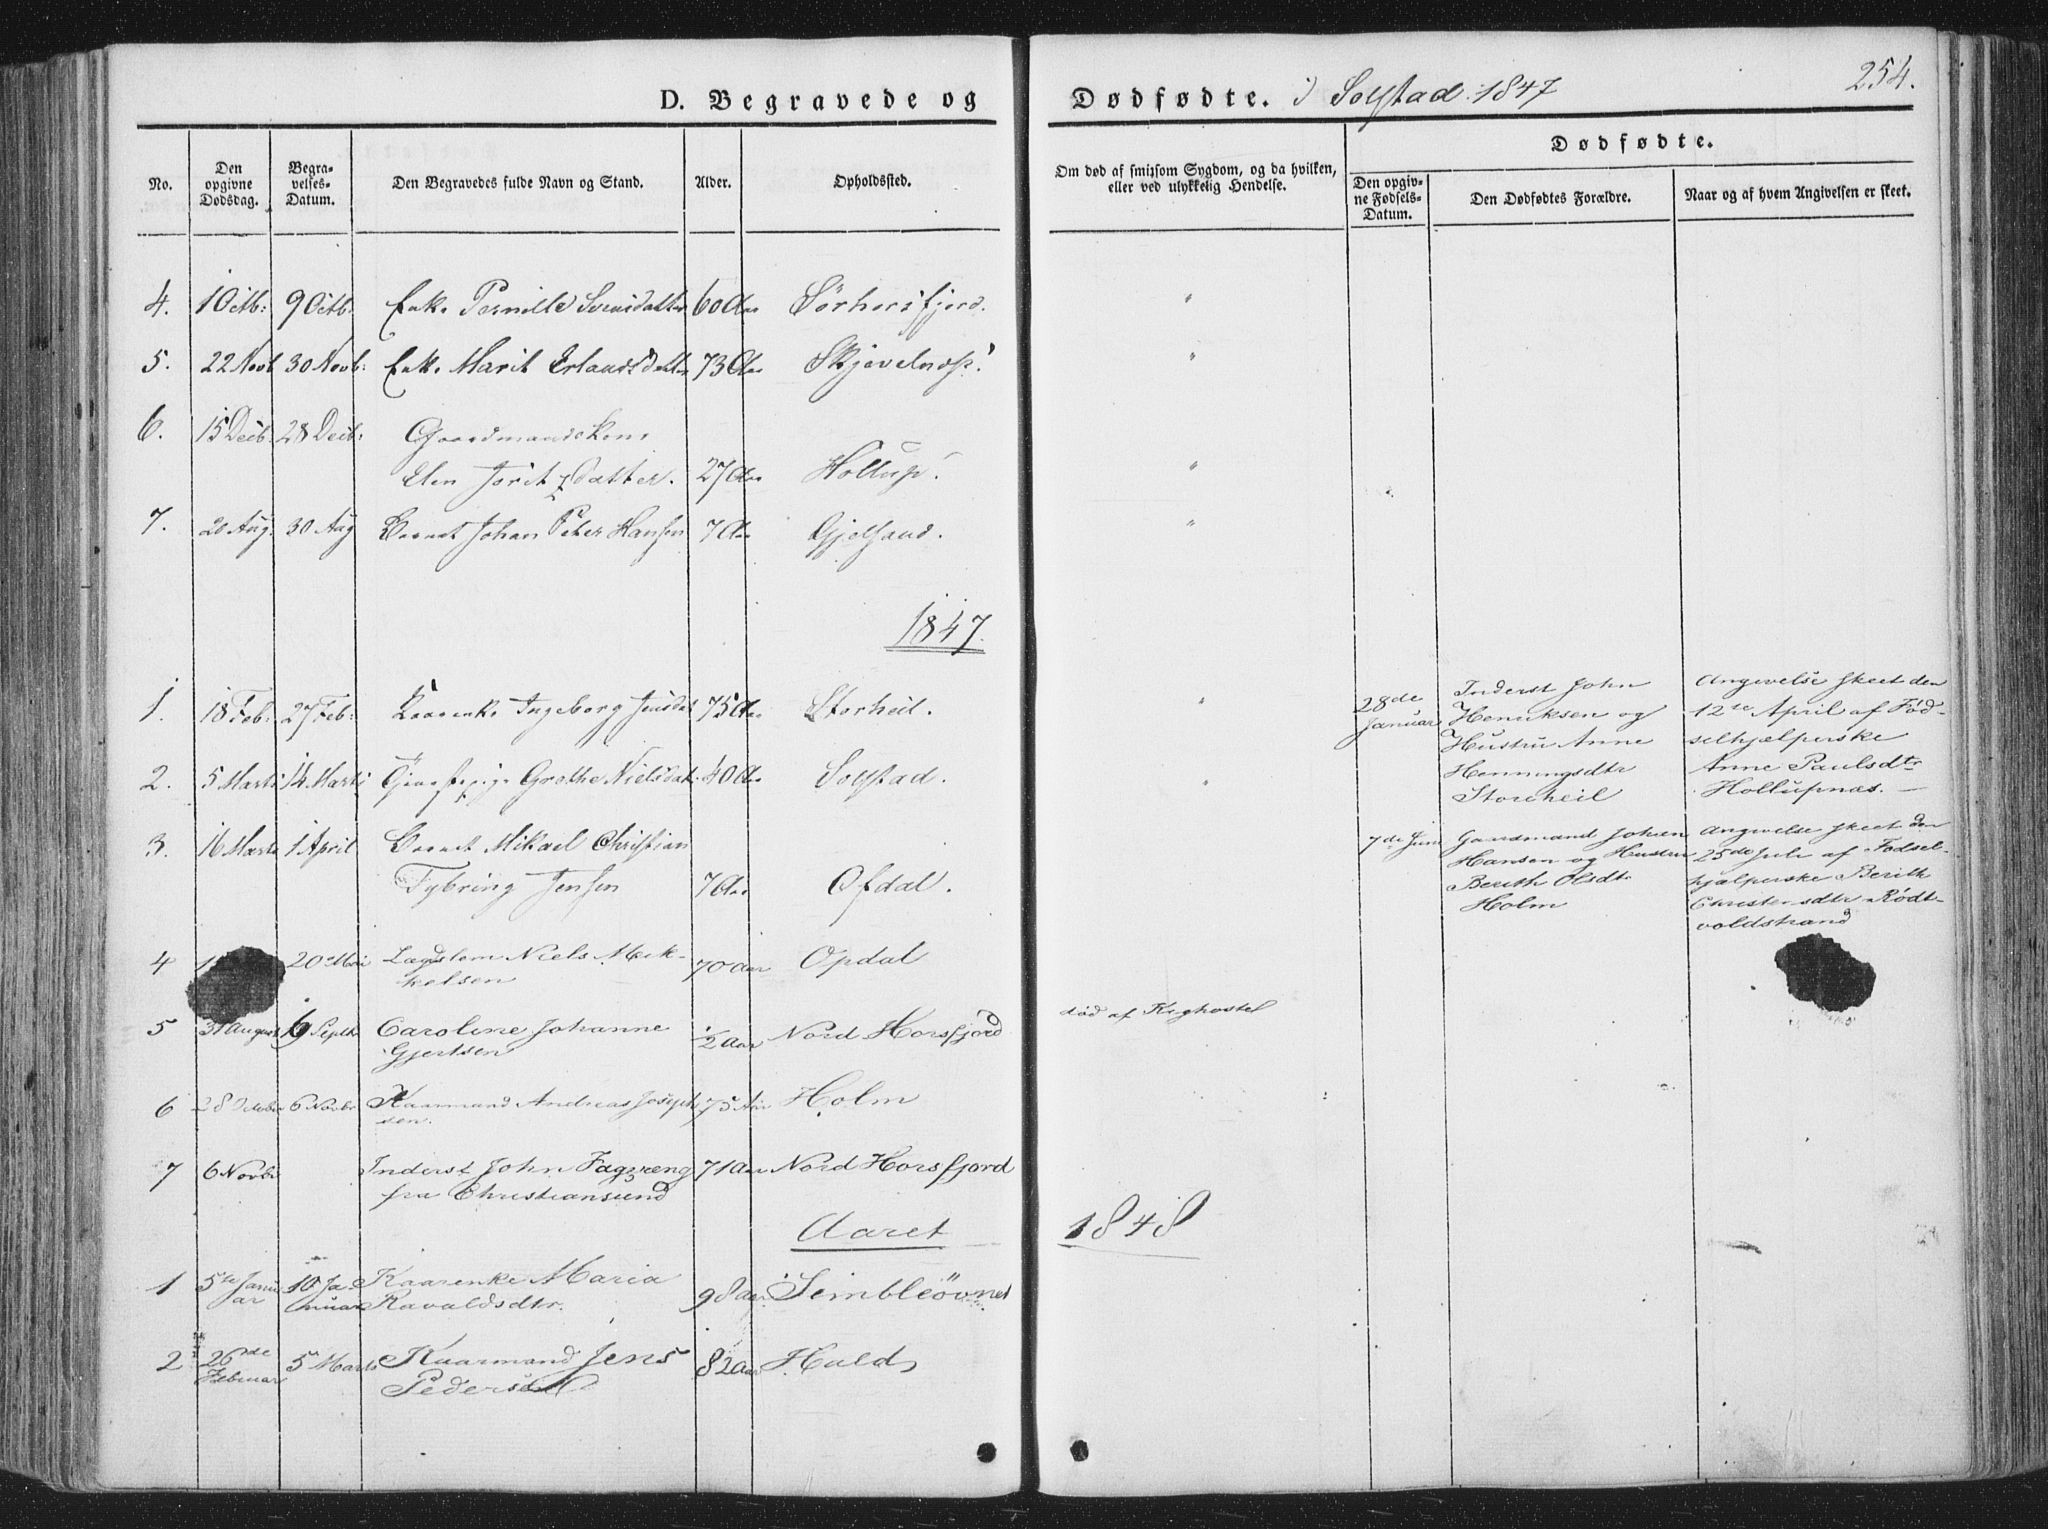 254.
D. Begravede og Dødfødte. i Solstad 1847
Dødfødte.
No.
Den opgivne Dødsdag.
Begravelses-Datum.
Den Begravedes fulde Navn og Stand.
Alder.
Opholdssted.
Om død af smitsom Sygdom, og da hvilken, eller ved ulykkelig Hendelse.
Den opgivne Fødsels-Datum.
Den Dødfødtes Forældre.
Naar og af hvem Angivelsen er skeet.
4. 1 Octb: 9 Octb: Enke Pernille 60 Aar Sørhorsfjord. "
5. 22 Novb 30 Novb: Enke Marit Erlandsdatter 73 Aar Skjevelnæs. "
6. 15 Decb. 28 Decb: Gaardmandskone
Elen datter. 27 Aar Hollup. "
7. 20 Aug. 30 Aug Barnet Johan Peter Hansen 7 Aar "
1847.
1. 18 Feb: 27 Feb: Ingeborg Jensdat 75 Aar Storheil. "
2. 5 Marti 14 Marti Grethe Nielsdat. 40 Aar Solstad. "
3. 16 Marti 1 April Barnet Mikael Christian
Tybring Jensen 7 Aar Opdal.
4 20 Mai Lægdslem Niels Mik-
kelsen 70 Aar Opdal
5 31 August Septb Caroline Johanne
Gjertsen 1/2 Aar Nord Horsfjord død af Kighoste
6 28 October 6 Novbr Kaarmand Andreas Joseph
sen. 75 Aar Holm
7 6 Novbr Inderst John Fagereng 71 Aar Nord Horsfjord
fra Christiansund
28de Januar
Inderst John
Henriksen og
Hustru Anne
Henningsdtr
Storheil
Angivelse skeet den
12te April af Fød-
selhjælperske
Anne Paulsdtr
Hollupnæs.
7de Juni
Gaardmand Johan
Hansen og Hustru
Berith Olsdtr
Holm
Angivelse skeet den
25de Juli af Fødsel-
hjælperske Berith
Christensdtr Rødt-
voldstrand
Aaret 1848
1 5te Janu
ar 10 Ja-
nuar Kaarenke Maria
Ravaldsdtr. 98 Aar
2 26de
Februar 5 Marts Kaarmand Jens
Pedersen 82 Aar Hald